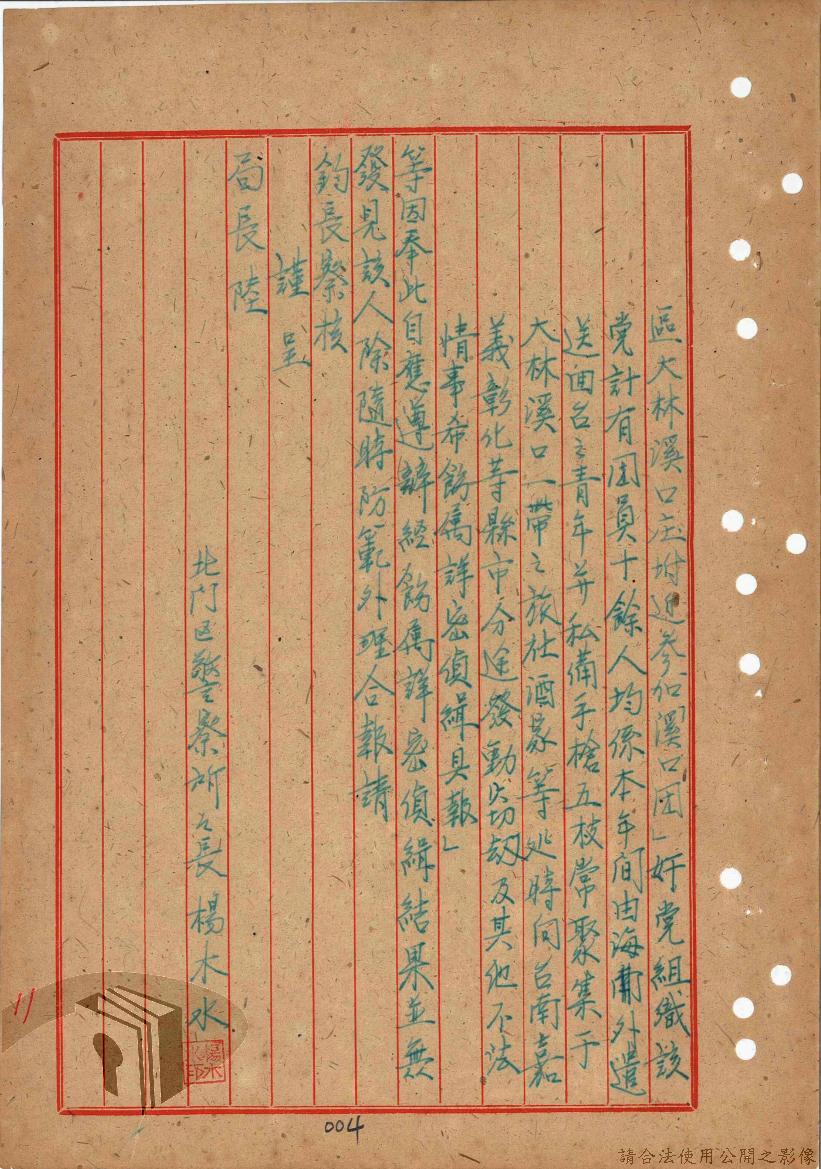 區大林溪口庄附近參加「溪口团」奸党組織該
党計有团員十餘人均係本年间由海南外遣
送囬台之青年并私備手槍五枝常聚集于
大林溪口一帶之旅社酒家等处時向台南嘉
義彰化等縣市分途發動盗劫及其他不法
情事希飭属詳密偵緝具報」
等因奉此自應遵辦経飭属詳密偵緝結果並無
發見該人除隨時防範外理合報請
鈞長察核
謹呈
局長陸
北门区警察所々長楊木水
楊木水印
11
004
請合法使用公開之影像